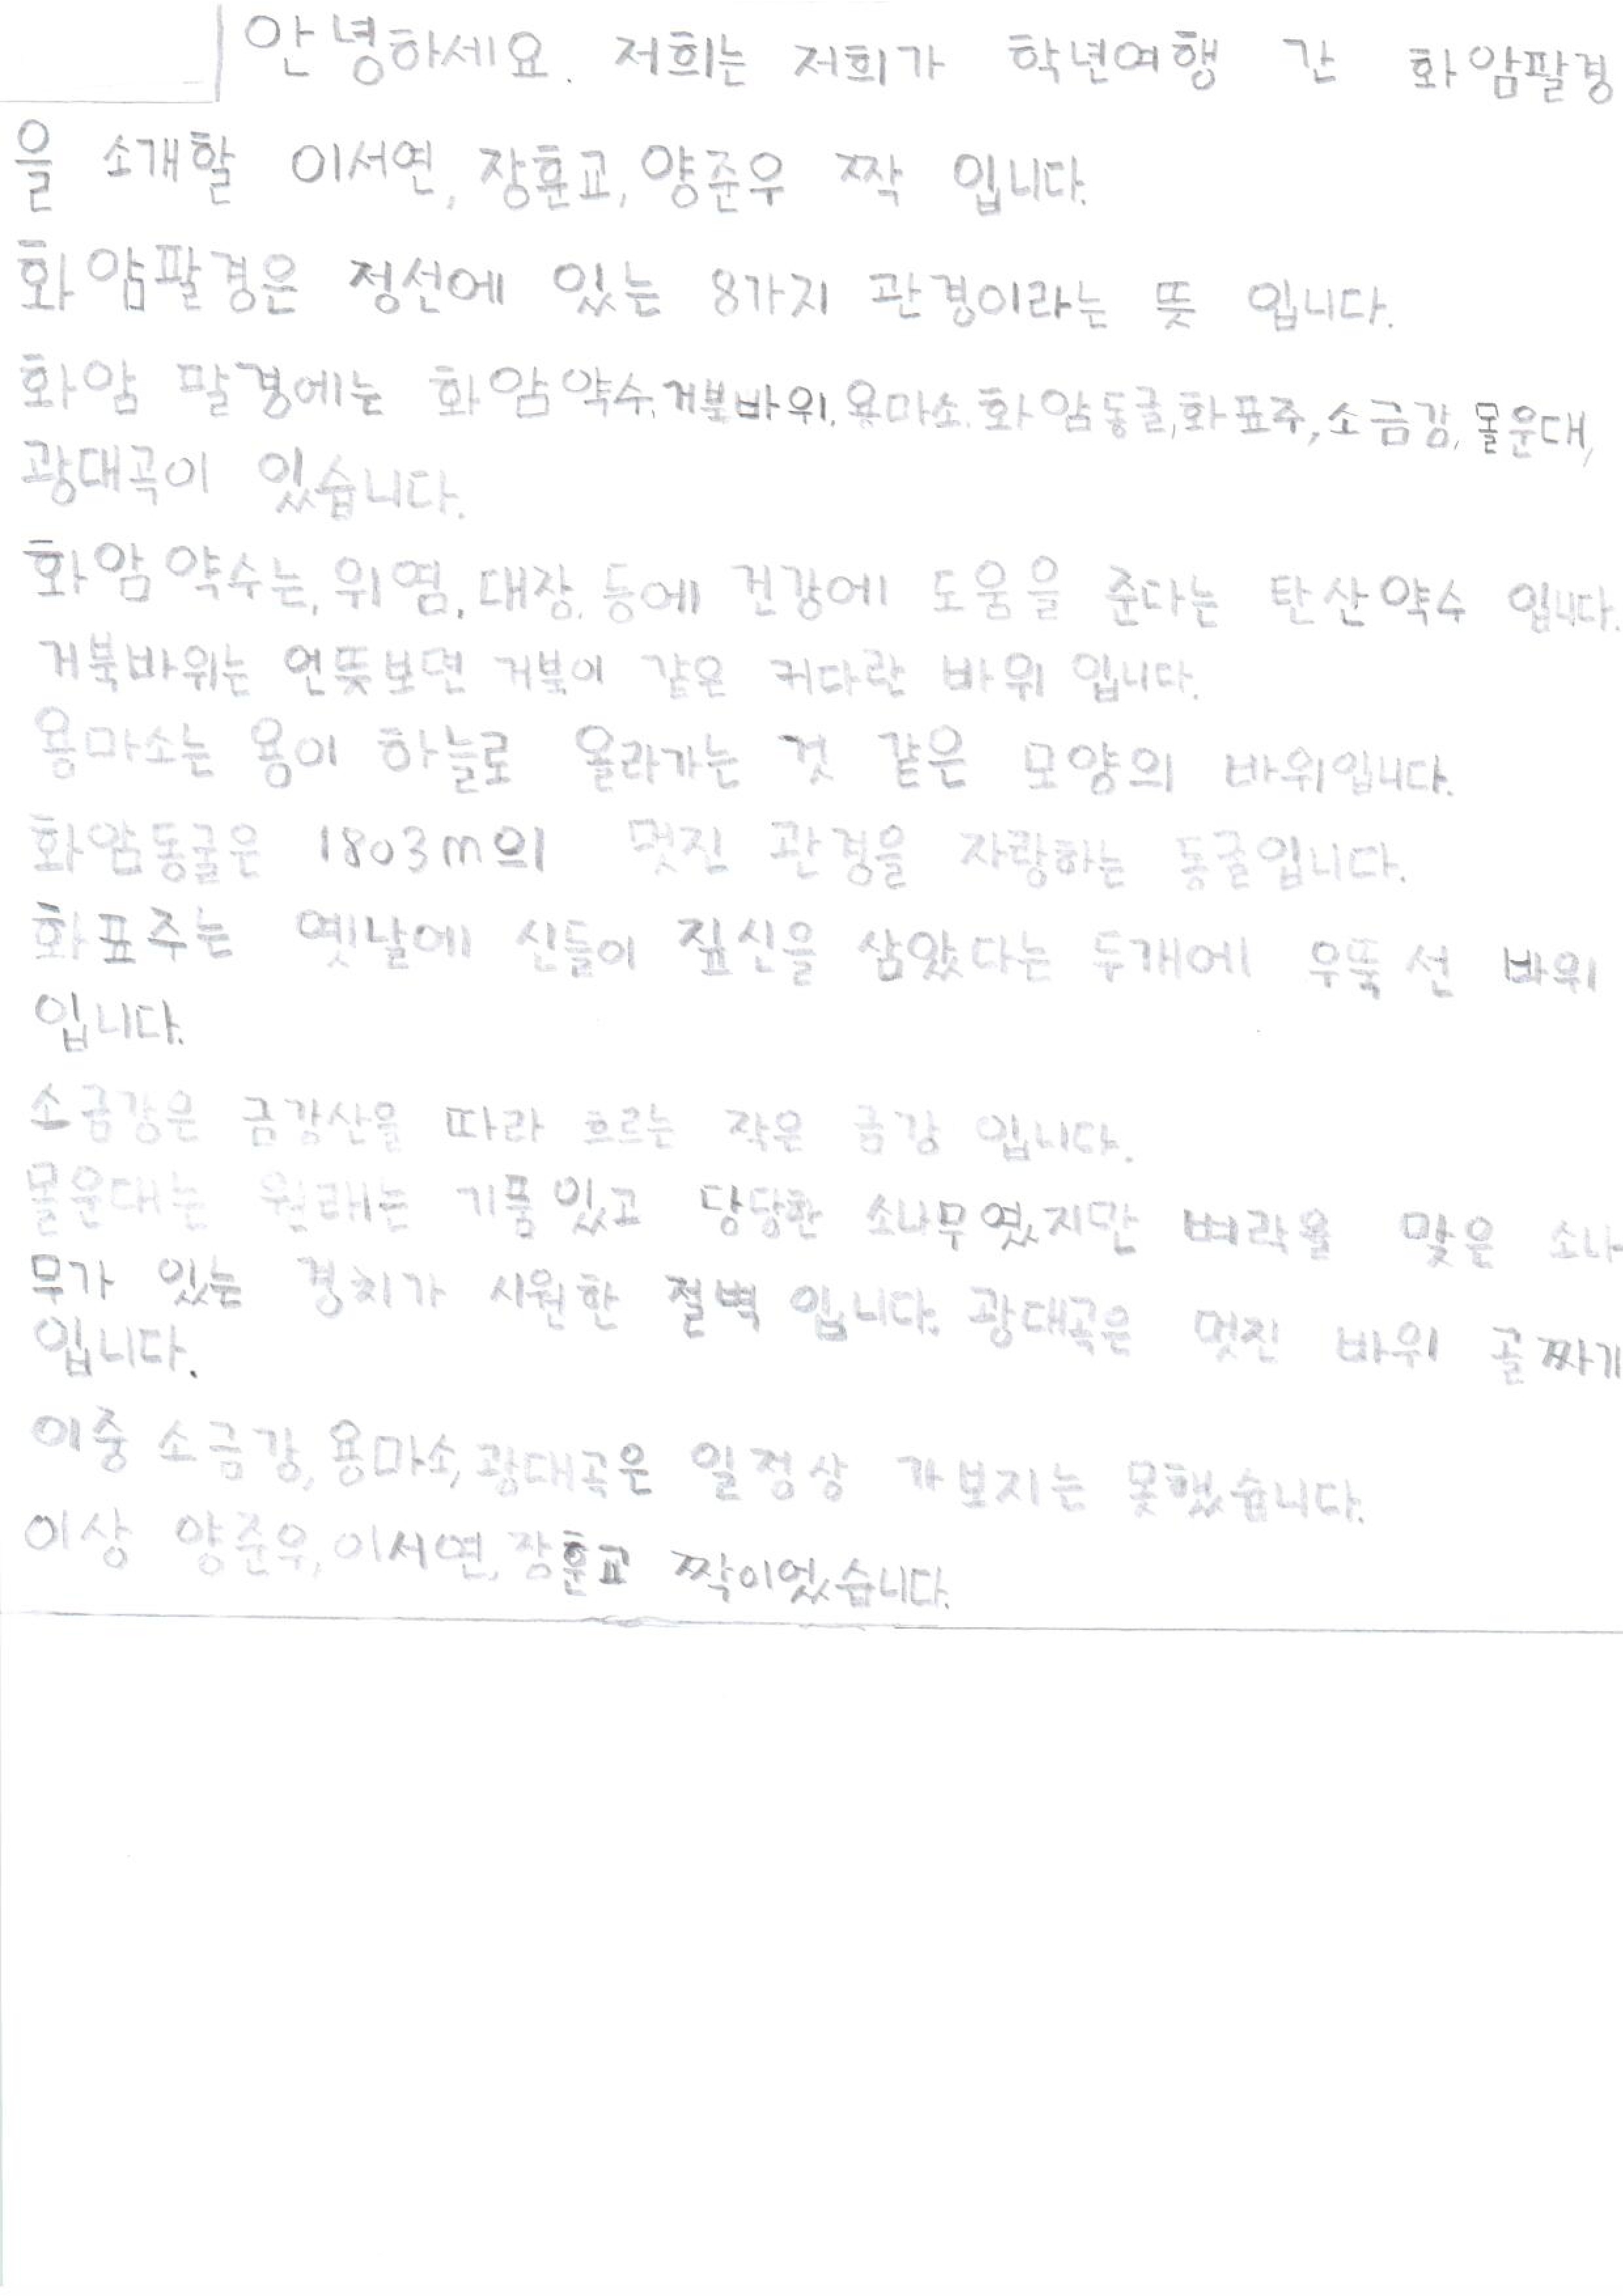 안녕하세요. 저희는 저희가 학년여행 간 화암팔경
을 소개할 이서연, 장훈교, 양준우 짝 입니다.
화암팔경은 정선에 있는 8가지 관경이라는 뜻 입니다.
화암 팔경에는 화암약수, 거북바위, 용마소, 화암동굴, 화표주, 소금강, 몰운대,
광대곡이 있습니다.
화암약수는, 위염, 대장, 등에 건강에 도움을 준다는 탄산약수 입니다.
거북바위는 언뜻보면 거북이 같은 커다란 바위 입니다.
용마소는 용이 하늘로 올라가는 것 같은 모양의 바위입니다.
화암동굴은 1803m의 멋진 관경을 자랑하는 동굴입니다.
화표주는 옛날에 신들이 짚신을 삼았다는 두개에 우뚝 선 바위
입니다.
소금강은 금강산을 따라 흐르는 작은 금강 입니다.
몰운대는 원래는 기품있고 당당한 소나무였지만 벼락을 맞은 소나
무가 있는 경치가 시원한 절벽 입니다. 광대곡은 멋진 바위 골짜기
입니다.
이중 소금강, 용마소, 광대곡은 일정상 가보지는 못했습니다.
이상 양준우, 이서연, 장훈교 짝이었습니다.